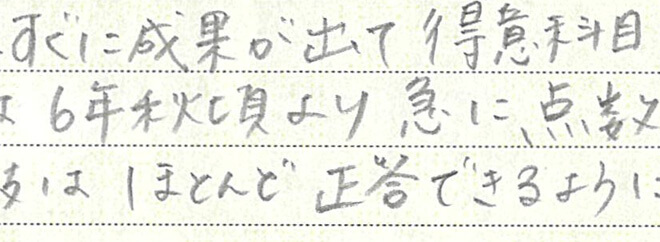 すぐに成果が出て得意科目
6年秋頃より急に、点数
はほとんど正答できるように